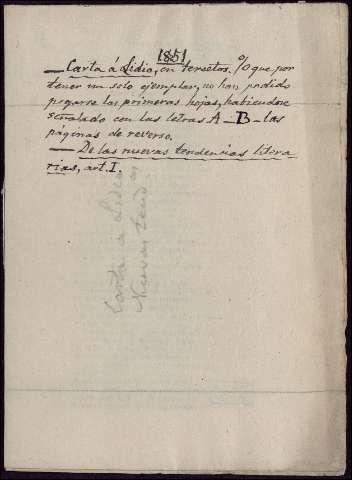 1851
— Carta á Lidia, en tersetos. %que por
tener un solo ejemplar, no han podido
pegarse las primeras hojas, habiendose
señalado con las letras A-B- las
páginas de reverso.
— De las nuevas tendencias litera
rias, art. I.
Carta a Lidia
Nuevas tend.